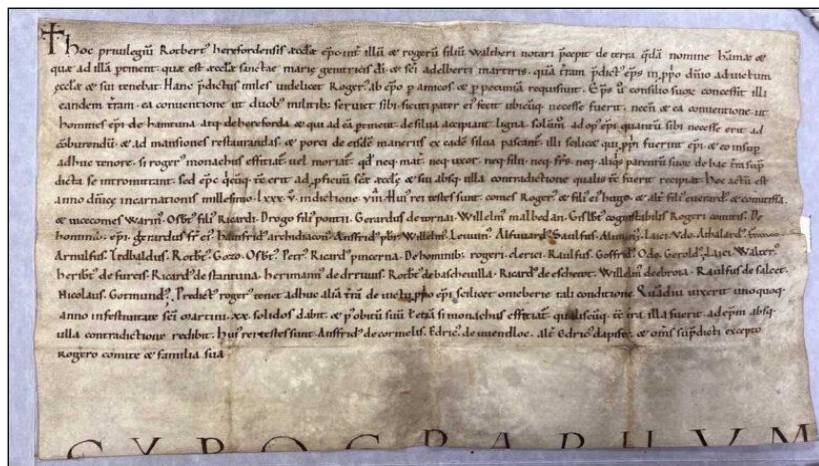 Hoc priuilegiū Rotbert' herefordensis æcclæ ep̄c int' illū & rogerū filiū Waltheri notari p̄cepit de terra q̄dā nomine hāmæ &
quæ ad illā ꝑtinent quæ est æcclæ sanctæ marię genitricis dī & scī adelberti martiris. quā t̄ram p̄dict' ep̄s in ꝓpo dn̄io ad uictum
æcclæ & sui tenebat. Hanc p̄dictus miles uidelicet Roger' ab ep̄o ꝑ amicos & ꝑ pecuniā requisiuit. Ep̄s ū consilio suoꝝ concessit illi
eandem t̄ram. ea conuentione ut duob' militib; seruiet sibi sicuti pater ei' fecit ubicūq; necesse fuerit. necn̄ & ea conuentione ut
homines ep̄i de hamtuna atq; de hereforda & qui ad eā ꝑtinent. de silua accipiant ligna. solūm ad op' ep̄i quantū sibi necesse erit ad
cōburendū. & ad mansiones restaurandas & porci de eisdē maneriis ex eadē silua pascant. illi scilicet qui ꝓprii fuerint ep̄i. & eo insup
adhuc tenore. si roger' monachus efficiat uel moriat. qd̄ neq; mat. neq; uxor. neq; filii. neq; fr̄s. neq; aliq̄s parentū suoꝝ de hac t̄ra sup
dicta se intromittant. sed ep̄c q̄cūq; tc̄ erit ad ꝓficuū scæ æcclæ & sui absq; ulla contradictione qualis tc̄ fuerit recipiat. Hoc actū est
anno dn̄icę incarnationis millesimo. lxxx. v. indictione viiiᵃ. Hui' rei testes sunt. comes Roger' & filii ei' hugo. & alt' filī euerard'. & comitissa.
& uicecomes Warin'. Osbt' filī Ricardi. Drogo filī pontii. Gerardus de tornai. Willelm' malbedan. Gislbt' cognstabilis Rogeri comitis. De
hominib; ep̄i. gerardus fr̄ ei'. hainfrid' archidiacon'. Ansfrid' pbr. Willelm'. Leuuin'. Alfuuard'. Saulfus. Aluuin'. Laici. Vdo. Athalard'. franco.
Arnulfus. Tedbaldus. Rotbt'. Gozo. Osbt'. Petr'. Ricard' pincerna. De hominib; rogeri. clerici. Raulfus. Goffrid'. Odo. Gerold'. Laici. Walter'.
heribt' de furcis. Ricard' de stantuna. herimann' de drruis. Rotbt' de bascheuilla. Ricard' de eschetot. Willelm' de ebroia. Raulfus de salcet.
Nicolaus. Gotmund'. Predict' roger' tenet adhuc aliā t̄rā de uictu ꝓpo ep̄i scilicet onceberie tali conditione. Quādiu uixerit unoquoq;
anno in festiuitate scī martini. xx. solidos dabit. & ꝑ' obitū suū ł etiā si monachus efficiat. qualiscūq; tc̄ t̄ra illa fuerit. ad ep̄m absq;
ulla contradictione redibit. Hui' rei testes sunt. Ansfrid' de cormelis. Edric' de uuendloc. alt' Edric' dapifer. & om̄s sup̄dicti excepto
Rogero comite & familia sua
CYROGRAPHVM